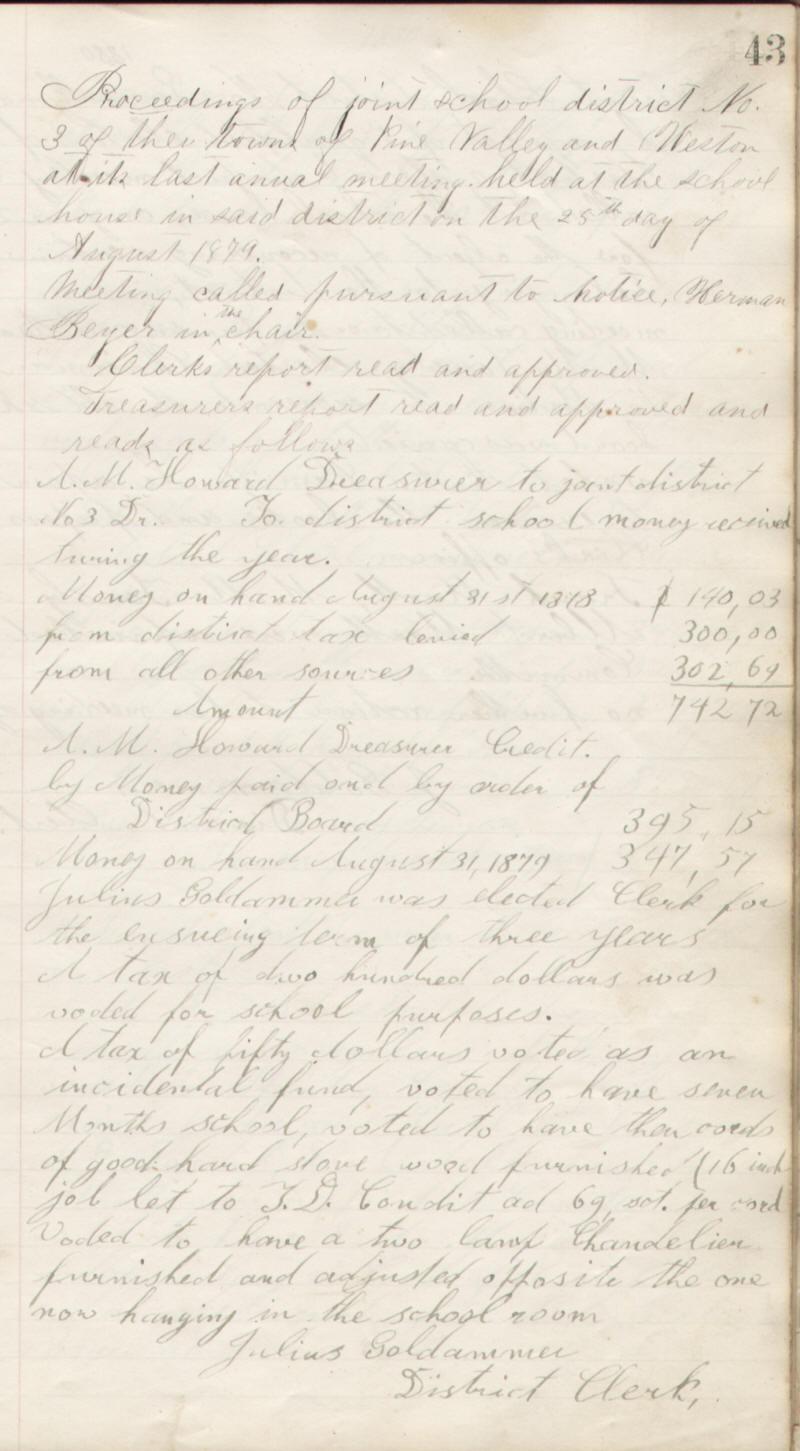 43
Proceedings of joint school district No.
3 of the towns of Pine Valley and Weston
at its last anual meeting held at the school
house in said district on the 25th day of
August 1879.
Meeting called pursuant to Notice, Herman
Beyer in the chair.
Clerks report read and approved.
Treasurers report read and approved and
reads as follows
A. M. Howard Dreasurer to joint district
No 3 Dr. To district school money received
during the year.
Money on hand August 31st 1878 $ 140,03
from district tax levied 300,00
from all other sources 302,69
Amount 742 72
A. M. Howard Dreasurer Credit.
by Money paid ond by order of
District Board 395,15
Money on hand August 31, 1879 347,57
Julius Goldammer was elected Clerk for
the ensueing term of three years
A tax of dwo hundred dollars was
voded for school purposes.
A tax of fifty dollars voted as an
incidental fund, voted to have seven
Months school, voted to have then cords
of good hard stove wood furnished (16 inch
job let to Condit ad 69 per cord
Voded to have a two lamp Chandelier
furnished and adjusted opposite the one
now hanging in the school room
Julius Goldammer
District Clerk,